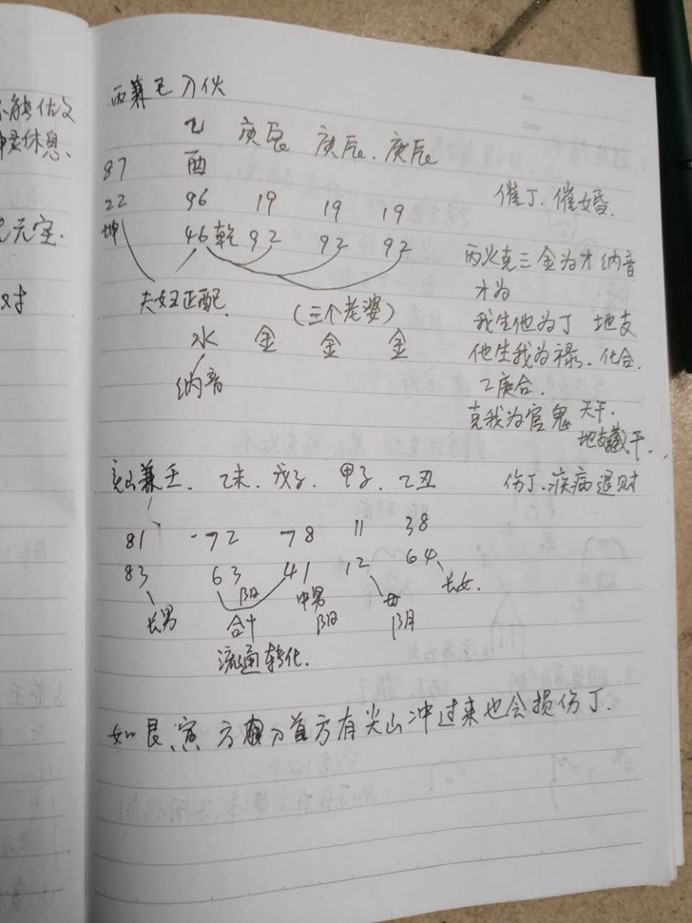 丙兼巳刀伙
乙 庚辰 庚辰、庚辰
87 酉
22 96 19 19 19 催丁、催婚。
坤 46 乾 92 92 92
丙火克三金为才纳音
才为
夫妇正配 (三个老婆) 我生他为丁 地支
水 金 金 金 他生我为禄、化合
纳音 乙庚合.
克我为官鬼 天干.
地支藏干.
亥山兼壬. 乙未、戊子、甲子、乙丑 伤丁、疾病退财
81 72 78 11 38
83 63 41 12 64
长男 阳 中男 母 长女.
合十 阳 阴
流通转化.
如艮、寅方有尖山冲过来也会损伤丁.
不能
休息、
元宝.
对